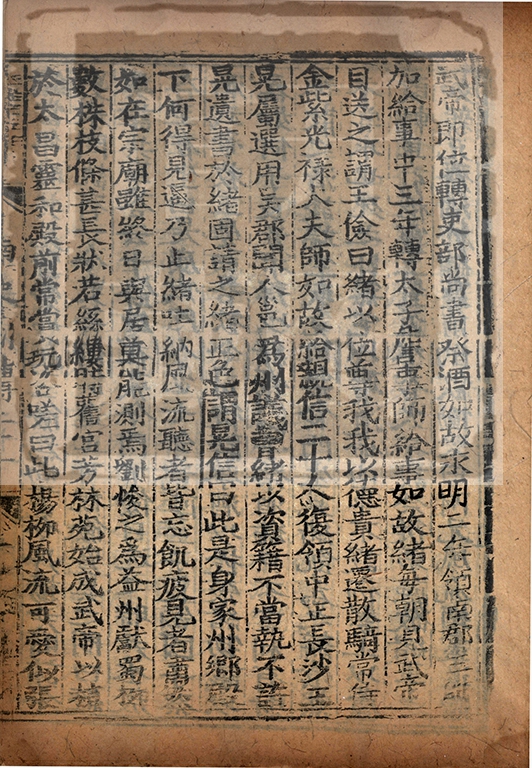 武帝即位轉吏部尚書祭酒如故永明一年領南郡
加給事中三年轉太子詹事師給事如故緒每朝見武帝
目送之謂王儉曰緒以位尊我我以德貴緒遷散騎常侍
金紫光祿大夫師如故給親信二十人復領中正長沙王
晃屬選用吳郡聞人邕為州議曹緒以資籍不當執不許
晃遺書於緒固請之緒正色謂晃信曰此是身家州鄉殿
下何得見逼乃止緒吐納風流聽者皆忘飢疲見者肅然
如在宗廟雖終日與居莫能測焉劉悛之為益州獻蜀柳
數株枝條甚長狀若絲縷時舊宮芳林苑始成武帝以植
於太昌靈和殿前常賞玩咨嗟曰此楊柳風流可愛似張